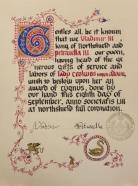 reetings all. be it known
that we Vladimir III
king of northshield and
petranella III our queen,
having heard of the ge
nerous gifts of service and
labors of lady
bestow upon her an
award of cygnus. done by
our hand this eighth day of
september, anno societatis
at northshield fall coronation.